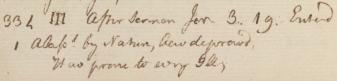 334 III After Sermon Jer 3. 19. Enter'd
1 Alass! by Nature, how deprav'd,
How prone to every Ill,